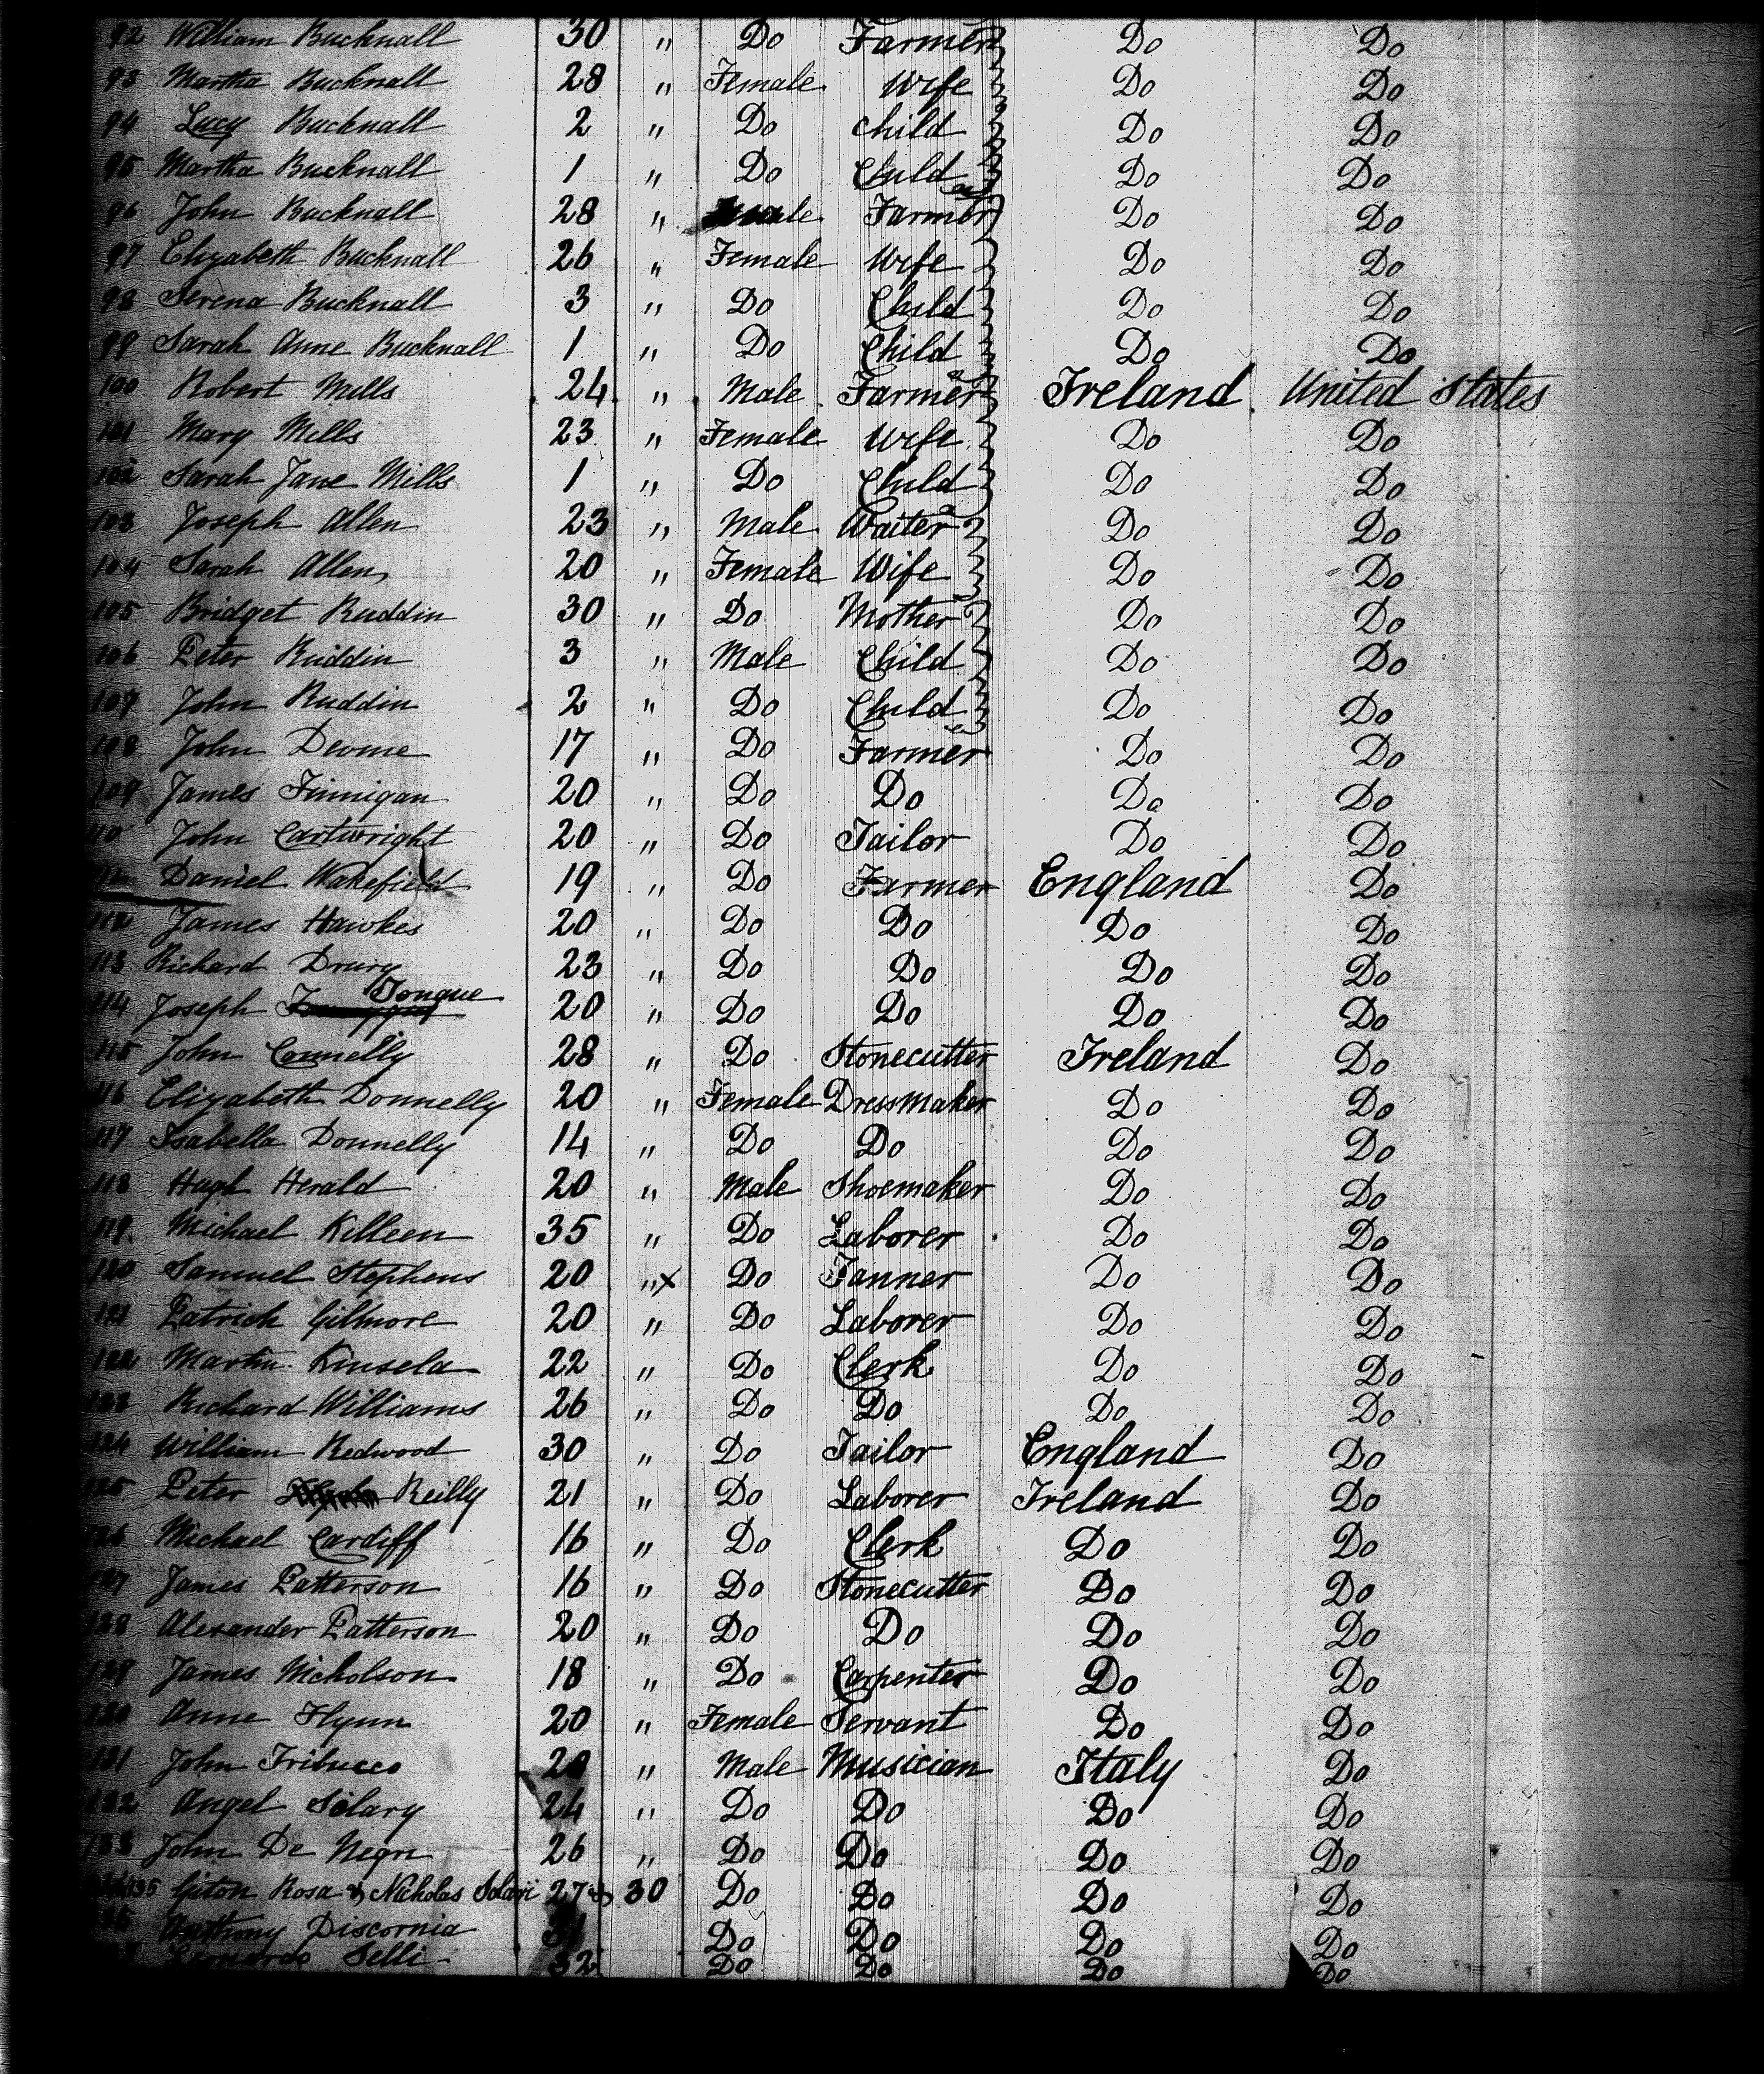 92 William Bucknall 30 " Do Farmer Do Do
93 Martha Bucknall 28 " Female Wife Do Do
94 Lucy Bucknall 2 " Do child Do Do
95 Martha Bucknall 1 " Do Child Do Do
96 John Bucknall 28 " male Farmer Do Do
97 Elizabeth Bucknall 26 " Female Wife Do Do
98 Serena Bucknall 3 " Do Child Do Do
99 Sarah Anne Bucknall 1 " Do Child Do Do
100 Robert Mills 24 " Male Farmer Ireland United States
101 Mary Mills 23 " Female Wife Do Do
102 Sarah Jane Mills 1 " Do Child Do Do
103 Joseph Allen 23 " Male Waiter Do Do
104 Sarah Allen 20 " Female Wife Do Do
105 Bridget Ruddin 30 " Do Mother Do Do
106 Peter Ruddin 3 " Male Child Do Do
107 John Ruddin 2 " Do Child Do Do
108 John Devine 17 " Do Farmer Do Do
109 James Finnigan 20 " Do Do Do Do
110 John Cartwright 20 " Do Tailor Do Do
Daniel Wakefield 19 " Do Farmer England Do
112 James Hawkes 20 " Do Do Do Do
113 Richard Drury 23 " Do Do Do Do
114 Joseph Tongue 20 " Do Do Do Do
115 John Connelly 28 " Do Stonecutter Ireland Do
116 Elizabeth Donnelly 20 " Female Dressmaker Do Do
117 Isabella Donnelly 14 " Do Do Do Do
118 Hugh Herald 20 " Male Shoemaker Do Do
119. Michael Killeen 35 " Do Laborer Do Do
120 Samuel Stephens 20 " x Do Tanner Do Do
121 Patrick Gilmore 20 " Do Laborer Do Do
122 Martin Kinsela 22 " Do Clerk Do Do
123 Richard Williams 26 " Do Do Do Do
124 William Redwood 30 " Do Tailor England Do
125 Peter Reilly 21 " Do Laborer Ireland Do
126 Michael Cardiff 16 " Do Clerk Do Do
127 James Patterson 16 " Do Stonecutter Do Do
128 Alexander Patterson 20 " Do Do Do Do
129 James Nicholson 18 " Do Carpenter Do Do
130 Anne Flynn 20 " Female Servant Do Do
131 John Tribucco " Male Musician Italy Do
132 Angel Solary 24 " Do Do Do Do
133 John De Negri 26 " Do Do Do Do
135 Giton Rosa & Nicholas Solari 27 & 30 Do Do Do Do
Anthony Discornia Do Do Do Do
Leonardo Selli 32 Do Do Do Do